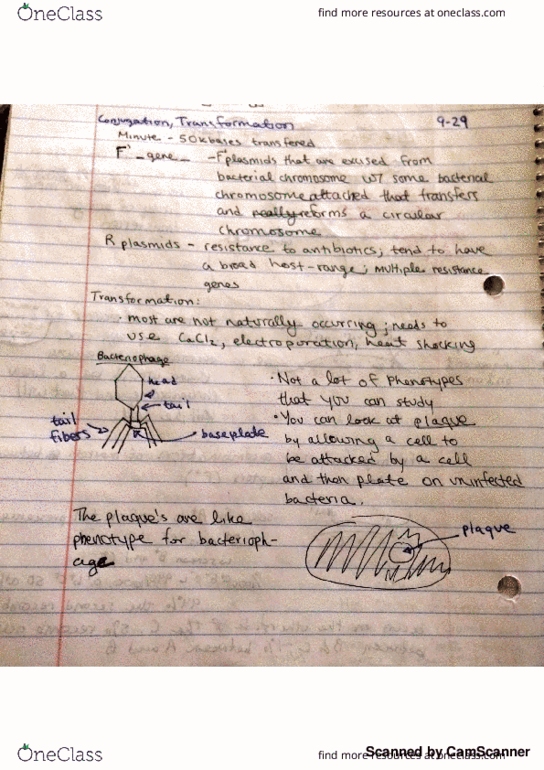 OneClass
find more resources at oneclass.com
Conjugation, Transformation 9-29
Minute - 50kbases transfered
F' - gene - F'plasmids that are excised from
bacterial chromosome w/ some bacterial
chromosome attached that transfers
and really reforms a circular
chromosome
R plasmids - resistance to antibiotics, tend to have
a broad host-range; multiple resistance
genes
Transformation:
· most are not naturally occurring; needs to
use CaCl2, electroporation, heat shocking
Bacteriophage
head
tail
tail
fibers
baseplate
· Not a lot of phenotypes
that you can study
· You can look at plaque
by allowing a cell to
be attacked by a cell
and then plate on uninfected
bacteria.
The plaque's are like
phenotype for bacterioph-
age
plaque
OneClass
find more resources at oneclass.com
Scanned by CamScanner